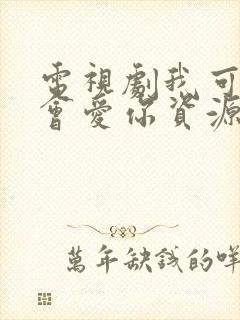 電視劇我可
會愛你資源
萬年缺錢的咩